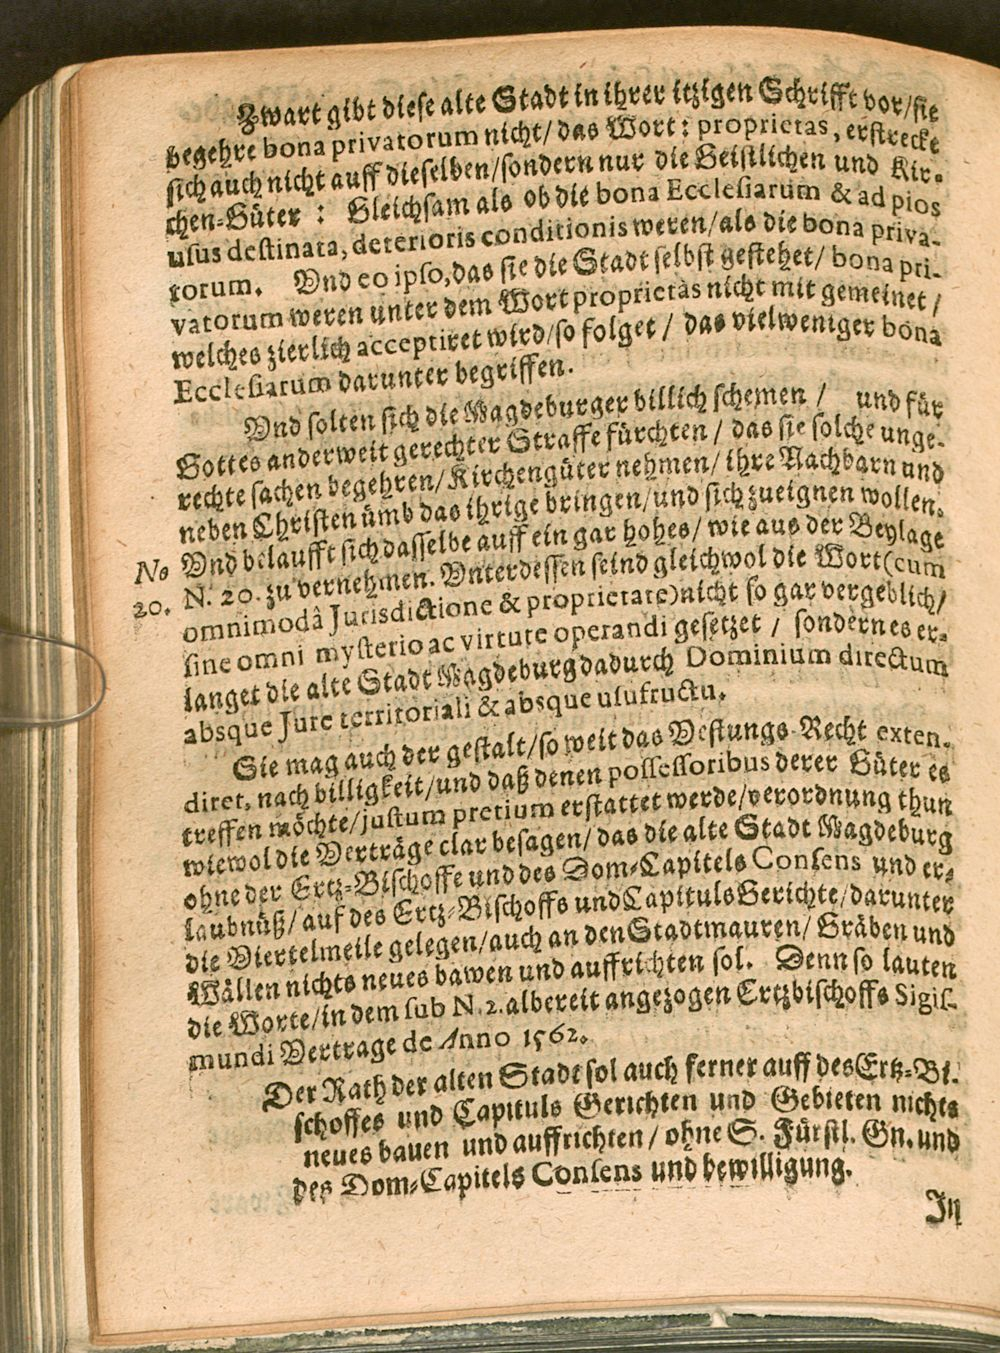 Zwart gibt diese alte Stadt in ihrer itzigen Schrifft vor/sie
begehre bona privatorum nicht/ das Wort: proprietas, erstrecke
sich auch nicht auff dieselben/sondern nur die Geistlichen und Kir-
chen-Güter : Gleichsam als ob die bona Ecclesiarum & ad pios
usus destinata, deterioris conditionis weren/als die bona priva-
torum. Vnd eo ipso, das sie die Stadt selbst gestehet/ bona pri-
vatorum weren unter dem Wort proprietas nicht mit gemeinet /
welches zierlich acceptiret wird/so folget / das vielweniger bona
Ecclesiarum darunter begriffen.
Vnd solten sich die Magdeburger billich schemen / und für
Gottes anderweit gerechter Straffe fürchten / das sie solche unge-
rechte sachen begehren/Kirchengüter nehmen/ ihre Nachbarn und
neben Christen ümb das ihrige bringen/und sich zueignen wollen.
Vnd belaufft sich dasselbe auff ein gar hohes/ wie aus der Beylage
No
20.
N. 20. zu vernehmen. Vnterdessen seind gleichwol die Wort(cum
omnimodâ Jurisdictione & proprietate)nicht so gar vergeblich/
sine omni mysterio ac virtute operandi gesetzet / sondern es er-
langet die alte Stadt Magdeburg dadurch Dominium directum
absque Jure territoriali & absque usufructu.
Sie mag auch der gestalt/so weit das Vestungs-Recht exten-
diret, nach billigkeit/und daß denen possessoribus derer Güter es
treffen möchte/justum pretium erstattet werde/verordnung thun
wiewol die Verträge clar besagen/ das die alte Stadt Magdeburg
ohne der Ertz-Bischoffe und des Dom-Capitels Consens und er-
laubnüß/auf des Ertz-Bischoffs und Capituls Gerichte/darunter
die Viertelmeile gelegen/auch an den Stadtmauren/ Gräben und
Wällen nichts neues bawen und auffrichten sol. Denn so lauten
die Worte/in dem sub N. 2. albereit angezogen Ertzbischoffs Sigis-
mundi Vertrage de Anno 1562.
Der Rath der alten Stadt sol auch ferner auff des Ertz-Bi-
schoffes und Capituls Gerichten und Gebieten nichts
neues bauen und auffrichten / ohne S. Fürstl. Gn. und
des Dom-Capitels Consens und bewilligung.
In